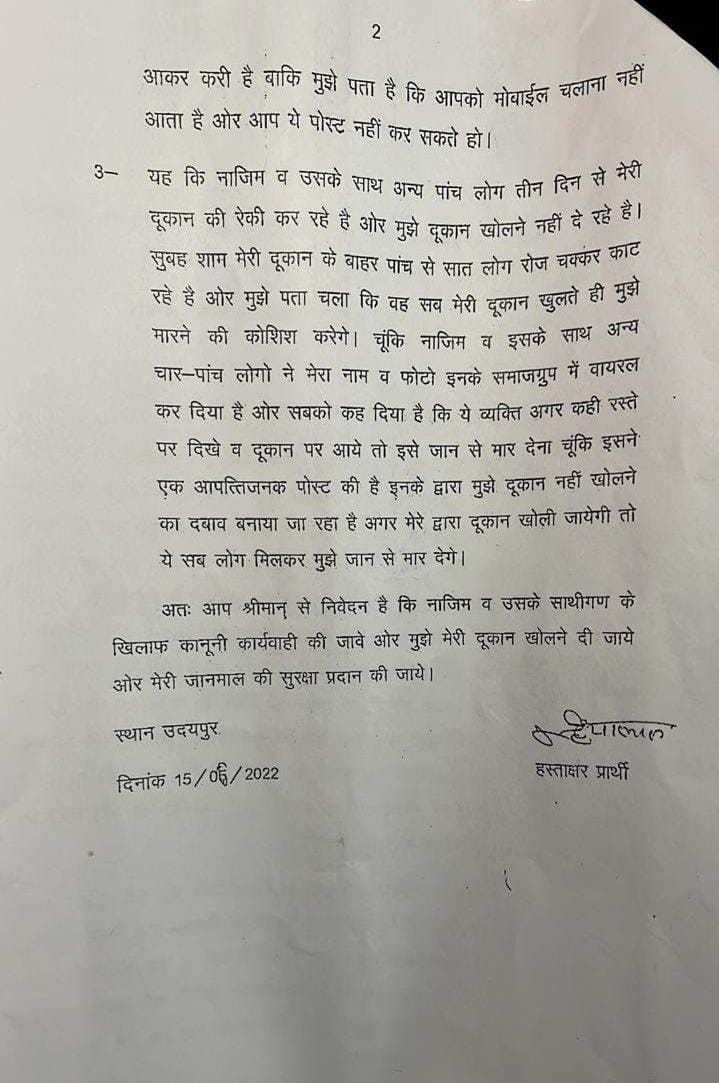 2
आकर करी है बाकि मुझे पता है कि आपको मोबाईल चलाना नहीं
आता है ओर आप ये पोस्ट नहीं कर सकते हो।
3– यह कि नाजिम व उसके साथ अन्य पांच लोग तीन दिन से मेरी
दूकान की रेकी कर रहे है ओर मुझे दूकान खोलने नहीं दे रहे है।
सुबह शाम मेरी दूकान के बाहर पांच से सात लोग रोज चक्कर काट
रहे है ओर मुझे पता चला कि वह सब मेरी दूकान खुलते ही मुझे
मारने की कोशिश करेगे। चूंकि नाजिम व इसके साथ अन्य
चार–पांच लोगो ने मेरा नाम व फोटो इनके समाजग्रुप में वायरल
कर दिया है ओर सबको कह दिया है कि ये व्यक्ति अगर कही रस्ते
पर दिखे व दूकान पर आये तो इसे जान से मार देना चूंकि इसने
एक आपत्तिजनक पोस्ट की है इनके द्वारा मुझे दूकान नहीं खोलने
का दबाव बनाया जा रहा है अगर मेरे द्वारा दूकान खोली जायेगी तो
ये सब लोग मिलकर मुझे जान से मार देगे।
अतः आप श्रीमान् से निवेदन है कि नाजिम व उसके साथीगण के
खिलाफ कानूनी कार्यवाही की जावे ओर मुझे मेरी दूकान खोलने दी जाये
ओर मेरी जानमाल की सुरक्षा प्रदान की जाये।
स्थान उदयपुर
दिनांक 15/06/2022
हस्ताक्षर प्रार्थी